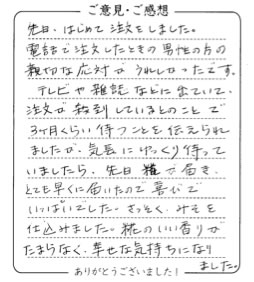 ご意見・ご感想
先日、はじめて注文をしました。
電話で注文したときの男性の方の
親切な応対がうれしかったです。
テレビや雑誌などに出ていて、
注文が殺到しているとのことで
3ヶ月くらい待つことを伝えられ
ましたが、気長にゆっくり待って
いましたら、先日糀が届き、
とても早くに届いたので喜びで
いっぱいでした。さっそく、みそを
仕込みました。糀のいい香りが
たまらなく、幸せな気持ちになり
ました。
ありがとうございました!